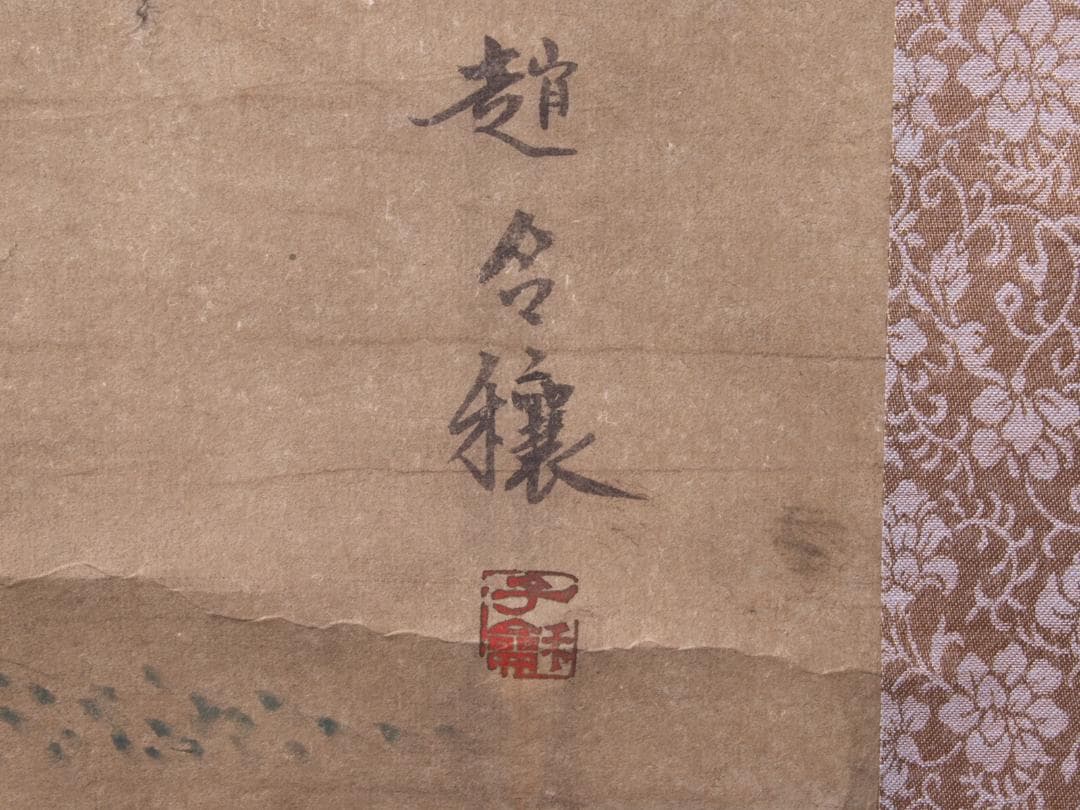 趙令穰
子龢